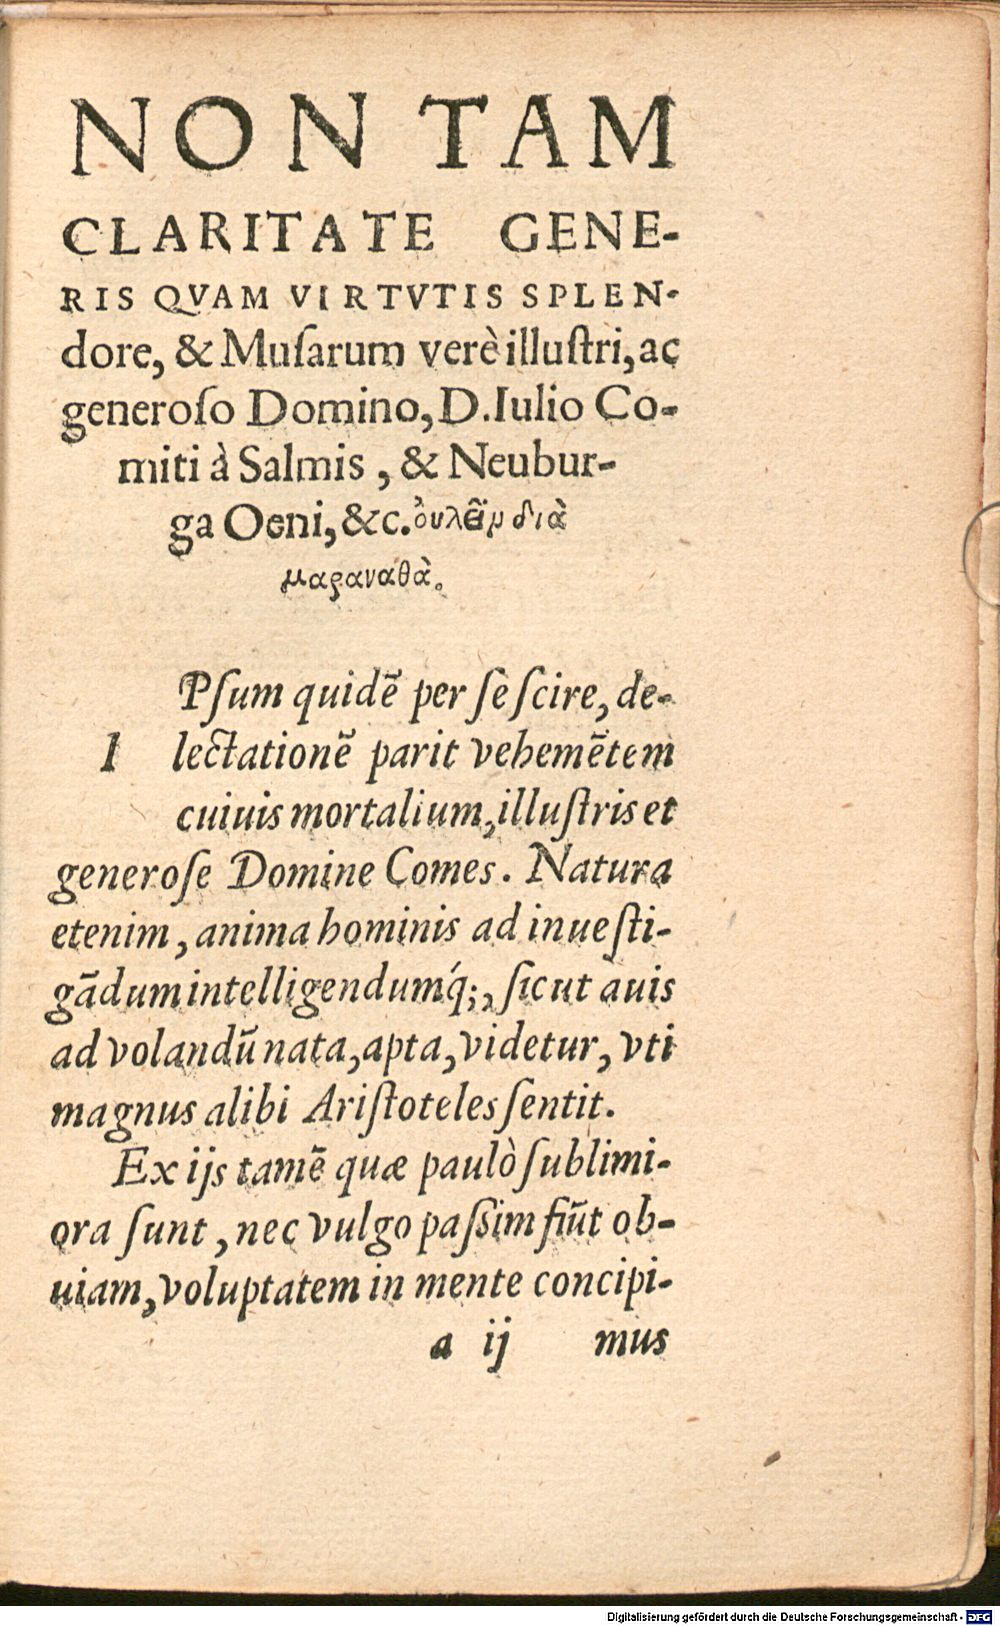 NON TAM
CLARITATE GENE-
RIS QVAM VIRTVTIS SPLEN-
dore, & Muſarum verè illuſtri, ac
generoſo Domino, D. Iulio Co-
miti à Salmis, & Neubur-
ga Oeni, &c. διὰ
μαραναθὰ.
Pſum quidē per ſe ſcire, de-
I lectationē parit vehemētem
cuiuis mortalium, illuſtris et
generoſe Domine Comes. Natura
etenim, anima hominis ad inueſti-
gādum intelligendumq́;, ſicut auis
ad volandū nata, apta, videtur, vti
magnus alibi Ariſtoteles ſentit.
Ex ijs tamē quæ paulò ſublimi-
ora ſunt, nec vulgo paſsim fiūt ob-
uiam, voluptatem in mente concipi-
a ij mus
Digitalisierung gefördert durch die Deutsche Forschungsgemeinschaft - DFG